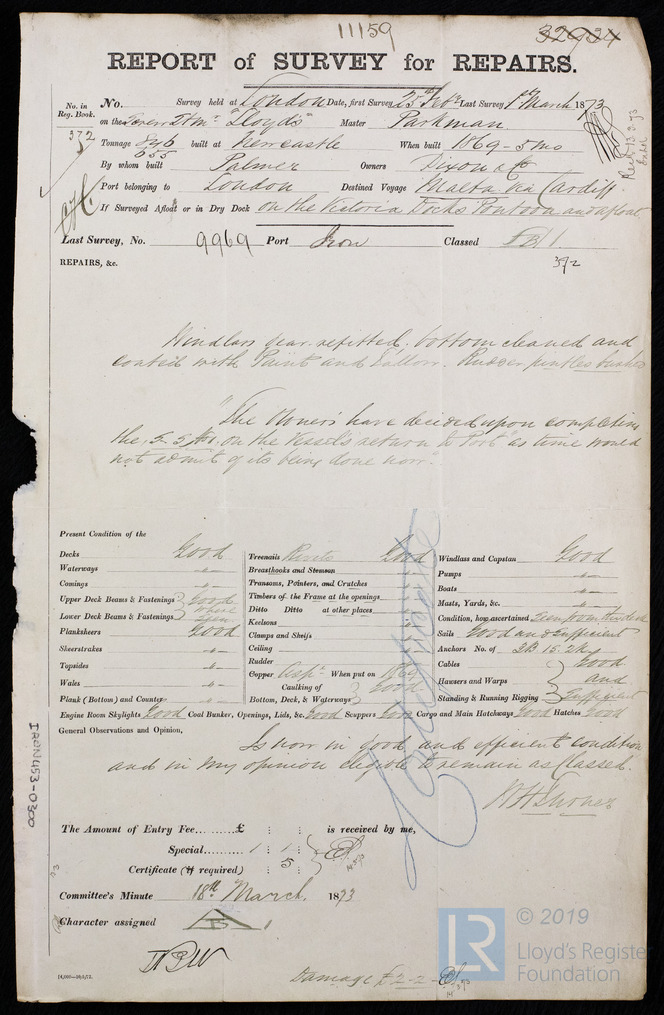 11159
32924
REPORT of SURVEY for REPAIRS.
No. in Reg. Book. 372
No. Survey held at London Date, first Survey 25th Feby Last Survey 1st March 1873
on the Screw Str "Lloyds" Master Parkman
Tonnage 846 built at Newcastle When built 1869-5mo
655
By whom built Palmer Owners Dixon & Co
Port belonging to London Destined Voyage Malta via Cardiff
If Surveyed Afloat or in Dry Dock on the Victoria Docks Pontoon and afloat
Last Survey, No. 9969 Port Iron Classed
REPAIRS, &c. 372
Windlass gear refitted, bottom cleaned and
coated with Paint and Tallow. Rudder pintles bushed
"The Owners have decided upon completing
the S.S. on the Vessel's return to Port" as time would
not admit of its being done now".
Present Condition of the
Decks Good
Waterways -"-
Comings -"-
Upper Deck Beams & Fastenings Good
Lower Deck Beams & Fastenings where seen
Planksheers Good
Sheerstrakes -"-
Topsides -"-
Wales -"-
Plank (Bottom) and Counter -"-
Treenails Rivets Good
Breasthooks and Stemson
Transoms, Pointers, and Crutches
Timbers of the Frame at the openings
Ditto Ditto at other places
Keelsons
Clamps and Shelfs
Ceiling
Rudder
Copper When put on 1869
Caulking of Bottom, Deck, & Waterways Good
Windlass and Capstan Good
Pumps -"-
Boats -"-
Masts, Yards, &c. -"-
Condition, how ascertained
Sails Good and sufficient
Anchors No. of 3B 1S. 2K
Cables Good
Hawsers and Warps and
Standing & Running Rigging sufficient
Engine Room Skylights Good Coal Bunker, Openings, Lids, &c. Good Scuppers Good Cargo and Main Hatchways Good Hatches Good
General Observations and Opinion,
Is now in good and efficient condition
and in my opinion eligible to remain as Classed.
W H Turner
The Amount of Entry Fee......... £ : : is received by me,
Special......... 1 : 1 :
Certificate (if required) : 5 :
Committee's Minute 18th March 1873
Character assigned A 1
Damage £2-2-
IRON453-0300
© 2019
LR
Lloyd's Register
Foundation